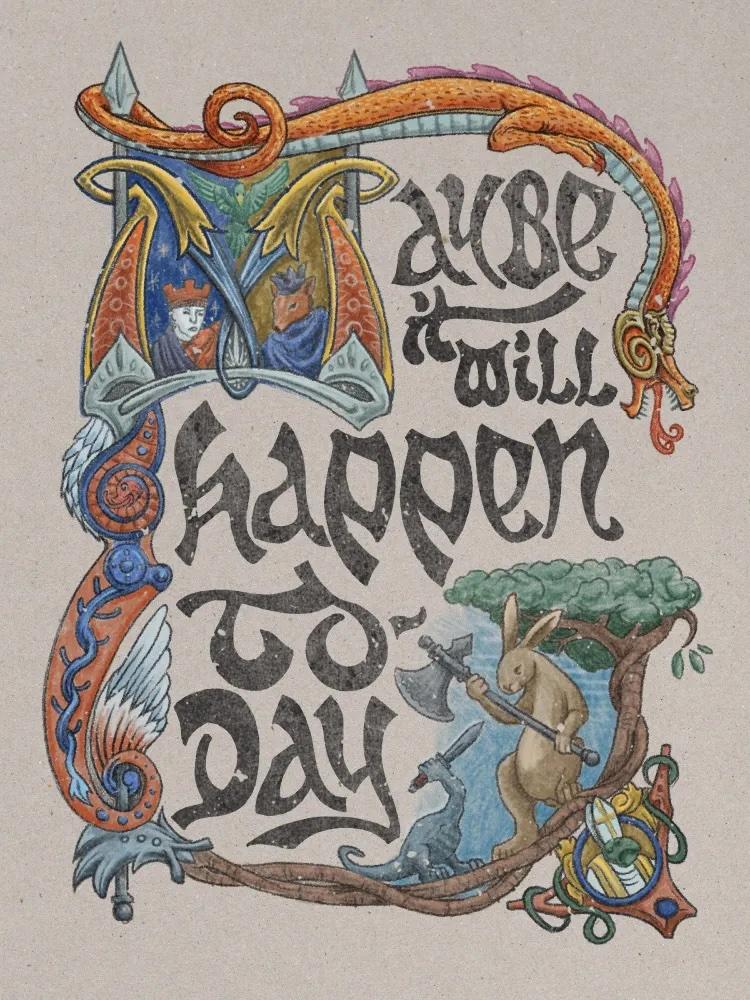 Maybe
it
will
happen
to-
Day